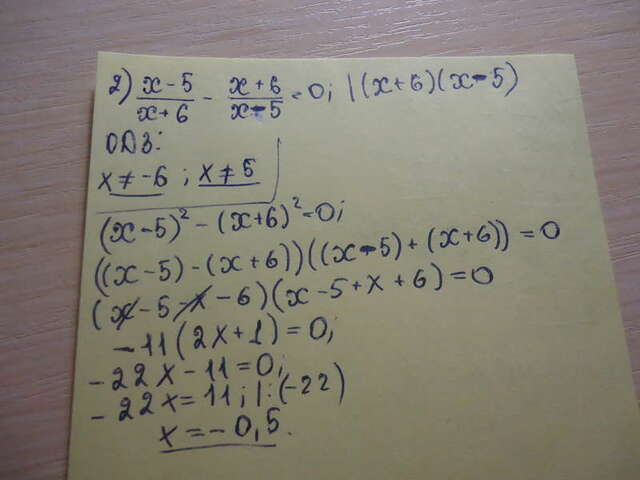 2) (x-5)/(x+6) - (x+6)/(x-5) = 0; |(x+6)(x-5)
ОДЗ:
x≠-6 ; x≠5
(x-5)² - (x+6)² = 0;
((x-5)-(x+6))((x-5)+(x+6)) = 0
(x-5-x-6)(x-5+x+6) = 0
-11(2x+1) = 0;
-22x-11=0;
-22x=11; |:(-22)
x=-0,5.